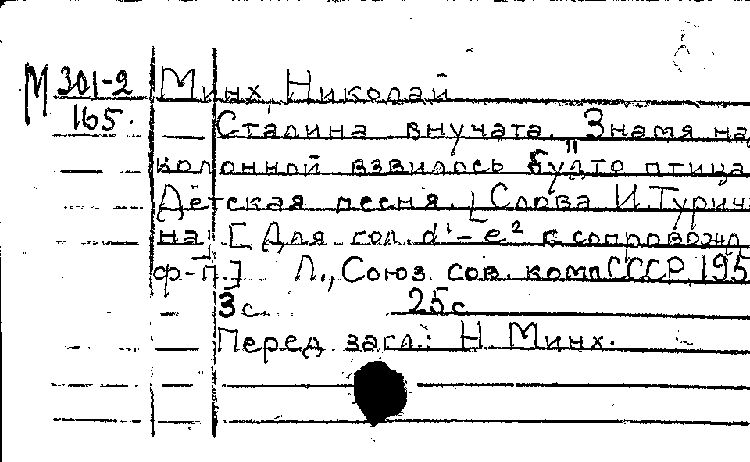 М 301-2
165.
Минх, Николай
— Сталина внучата. Знамя над
колонной взвилось будто птица"
Детская песня. [Слова И. Туричи
на] [Для гол. d¹-e² с сопровожд.
ф-п.] Л., Союз сов. комп СССР 195
3 с. 25 с
Перед загл.: Н. Минх.